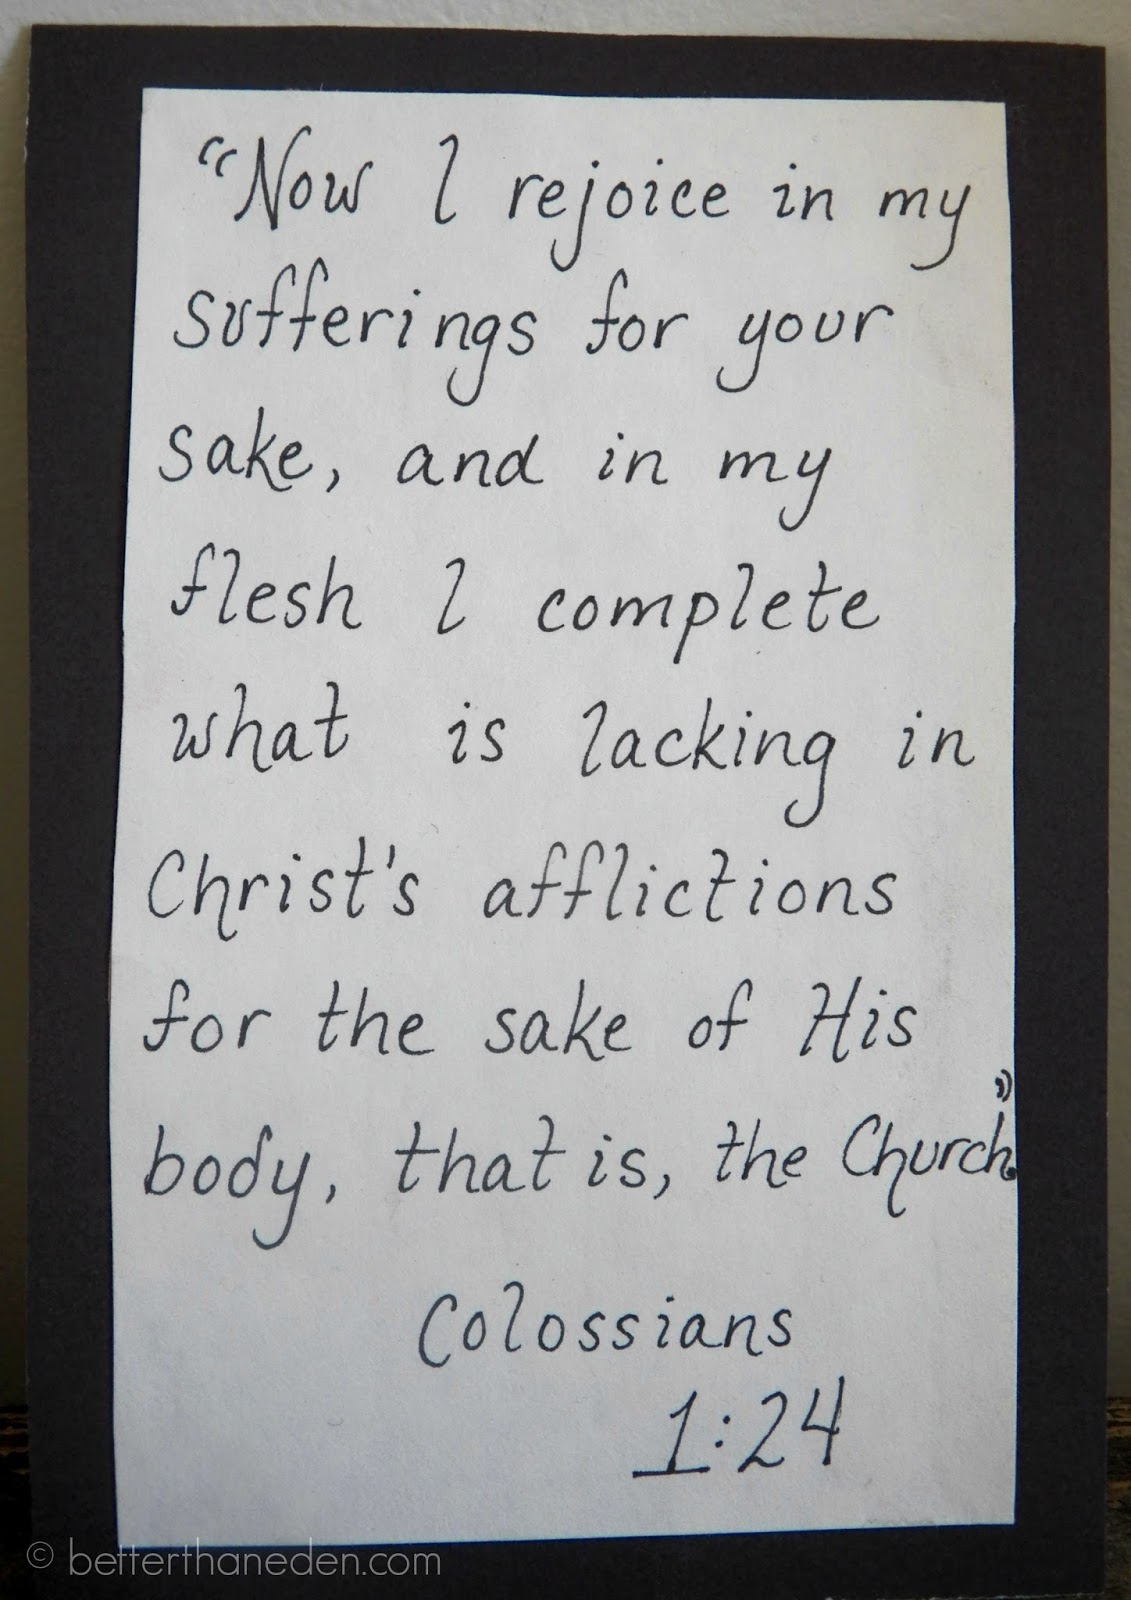 “Now I rejoice in my
sufferings for your
sake, and in my
flesh I complete
what is lacking in
Christ's afflictions
for the sake of His
body, that is, the Church.”
Colossians
1:24
© betterthaneden.com